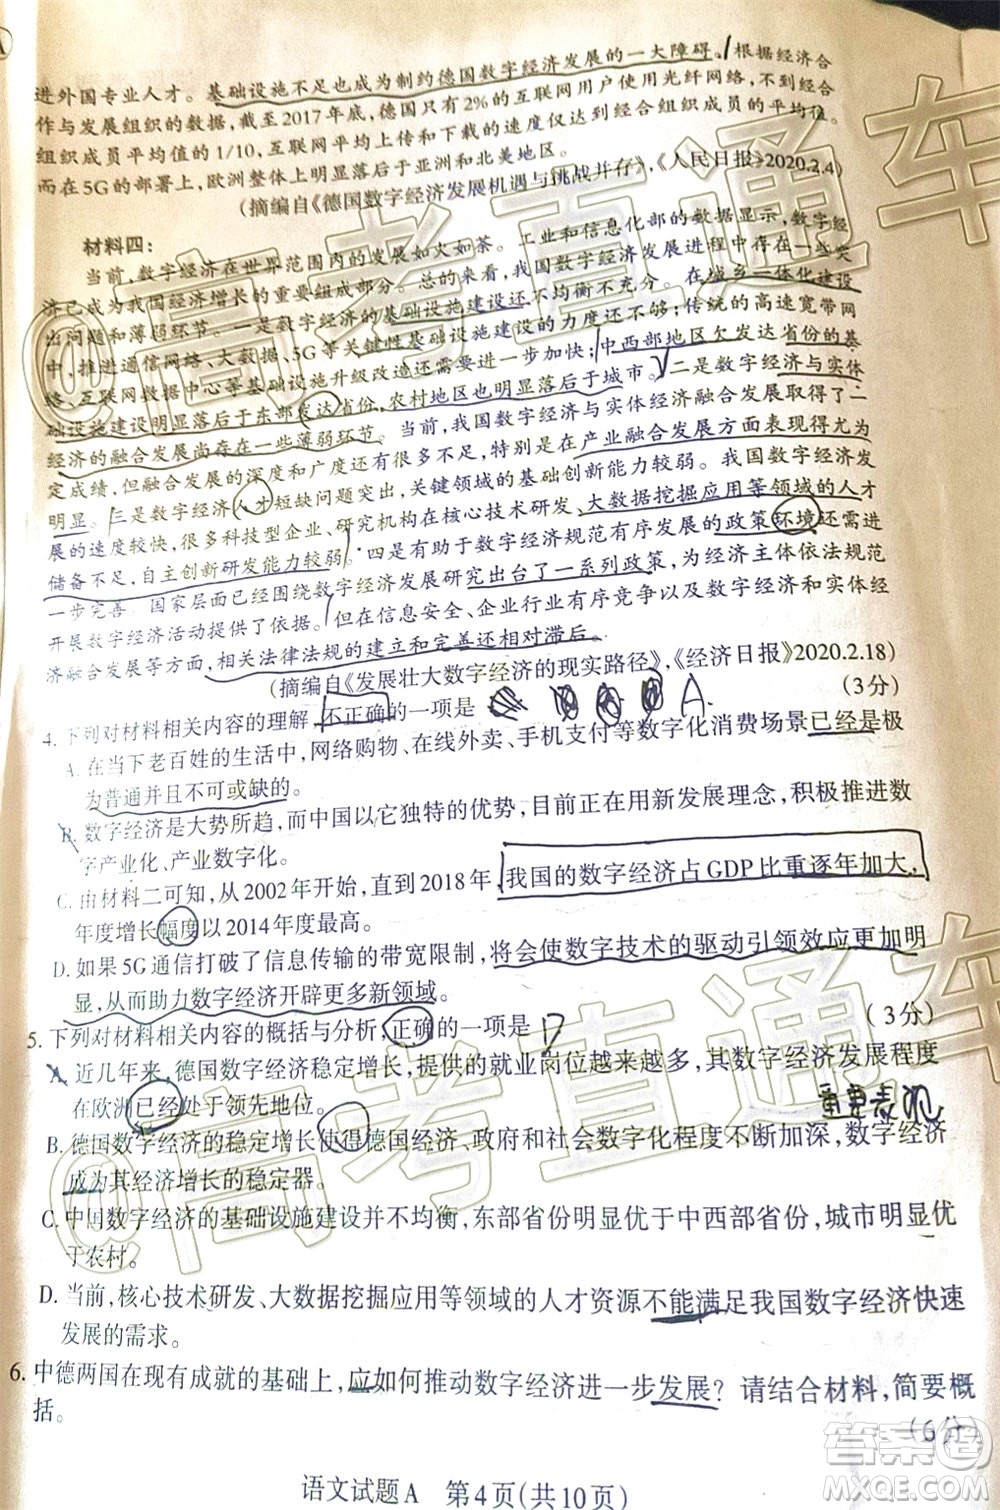 进外国专业人才。基础设施不足也成为制约德国数字经济发展的一大障碍。根据经济合
作与发展组织的数据,截至2017年底,德国只有2%的互联网用户使用光纤网络,不到经合
组织成员平均值的1/10,互联网平均上传和下载的速度仅达到经合组织成员的平均值。
而在5G的部署上,欧洲整体上明显落后于亚洲和北美地区。
(摘编自《德国数字经济发展机遇与挑战并存》,《人民日报》2020.2.4)
材料四:
当前,数字经济在世界范围内的发展如火如荼。工业和信息化部的数据显示,数字经
济已成为我国经济增长的重要组成部分。总的来看,我国数字经济发展还存在一些突
出问题和薄弱环节。一是数字经济的基础设施建设还不平衡不充分。在城乡一体化建设
中,推进通信网络、大数据、5G等关键性基础设施建设的力度还不够;传统的高速宽带网
络、互联网数据中心等基础设施升级改造还需进一步加快;中西部地区欠发达省份的基
础设施建设明显落后于东部发达省份,农村地区也明显落后于城市。二是数字经济与实体
经济的融合发展尚存在一些薄弱环节。当前,我国数字经济与实体经济融合发展取得了一
定成绩,但融合发展的深度和广度还不够,在产业融合发展方面表现得尤为
明显。三是数字经济人才短缺问题突出,关键领域的基础创新能力较弱。我国数字经济发
展的速度较快,很多科技型企业、研究机构在核心技术研发、大数据挖掘应用等领域的人才
储备不足,自主创新研发能力较弱。四是有助于数字经济规范有序发展的政策环境还需进
一步完善。国家层面已经围绕数字经济发展研究出台了一系列政策,为经济主体依法规范
开展数字经济活动提供了依据。但在信息安全、企业行业有序竞争以及数字经济与实体经
济融合发展等方面,相关法律法规的建立和完善还相对滞后。
(摘编自《发展壮大数字经济的现实路径》,《经济日报》2020.2.18)
4. 下列对材料相关内容的理解,不正确的一项是 A (3分)
A. 在当下老百姓的生活中,网络购物、在线外卖、手机支付等数字化消费场景已经是极
为普通并且不可或缺的。
B. 数字经济是大势所趋,而中国以它独特的优势,目前正在用新发展理念,积极推进数
字产业化、产业数字化。
C. 由材料二可知,从2002年开始,直到2018年,我国的数字经济占GDP比重逐年加大,
年度增长幅度以2014年度最高。
D. 如果5G通信打破了信息传输的带宽限制,将会使数字技术的驱动引领效应更加明
显,从而助力数字经济开辟更多新领域。
5. 下列对材料相关内容的概括与分析,正确的一项是 D (3分)
A. 近几年来,德国数字经济稳定增长,提供的就业岗位越来越多,其数字经济发展程度
在欧洲已经处于领先地位。
重要表现
B. 德国数字经济的稳定增长使得德国经济、政府和社会数字化程度不断加深,数字经济
成为其经济增长的稳定器。
C. 中国数字经济的基础设施建设并不均衡,东部省份明显优于中西部省份,城市明显优
于农村。
D. 当前,核心技术研发、大数据挖掘应用等领域的人才资源不能满足我国数字经济快速
发展的需求。
6. 中德两国在现有成就的基础上,应如何推动数字经济进一步发展?请结合材料,简要概
括。
(6分)
语文试题A 第4页(共10页)
@高考直通车
@高考直通车
答案圈
MXQE.COM